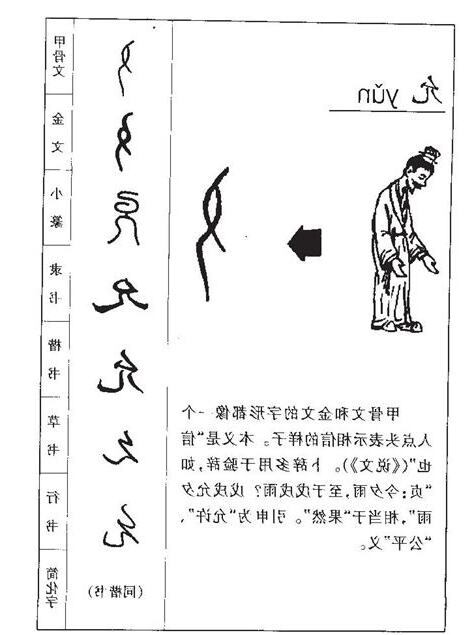 允 yǔn
甲骨文和金文的字形都像一个
人点头表示相信的样子。本义是“信
也”(《说文》)。卜辞多用于验辞,如
“贞:今夕雨,至于戊戌雨?戊戌允夕
雨”,相当于“果然”。引申为“允许”、
“公平”义。
甲骨文
金文
小篆
隶书
允
楷书
允
草书
行书
简化字
(同楷书)